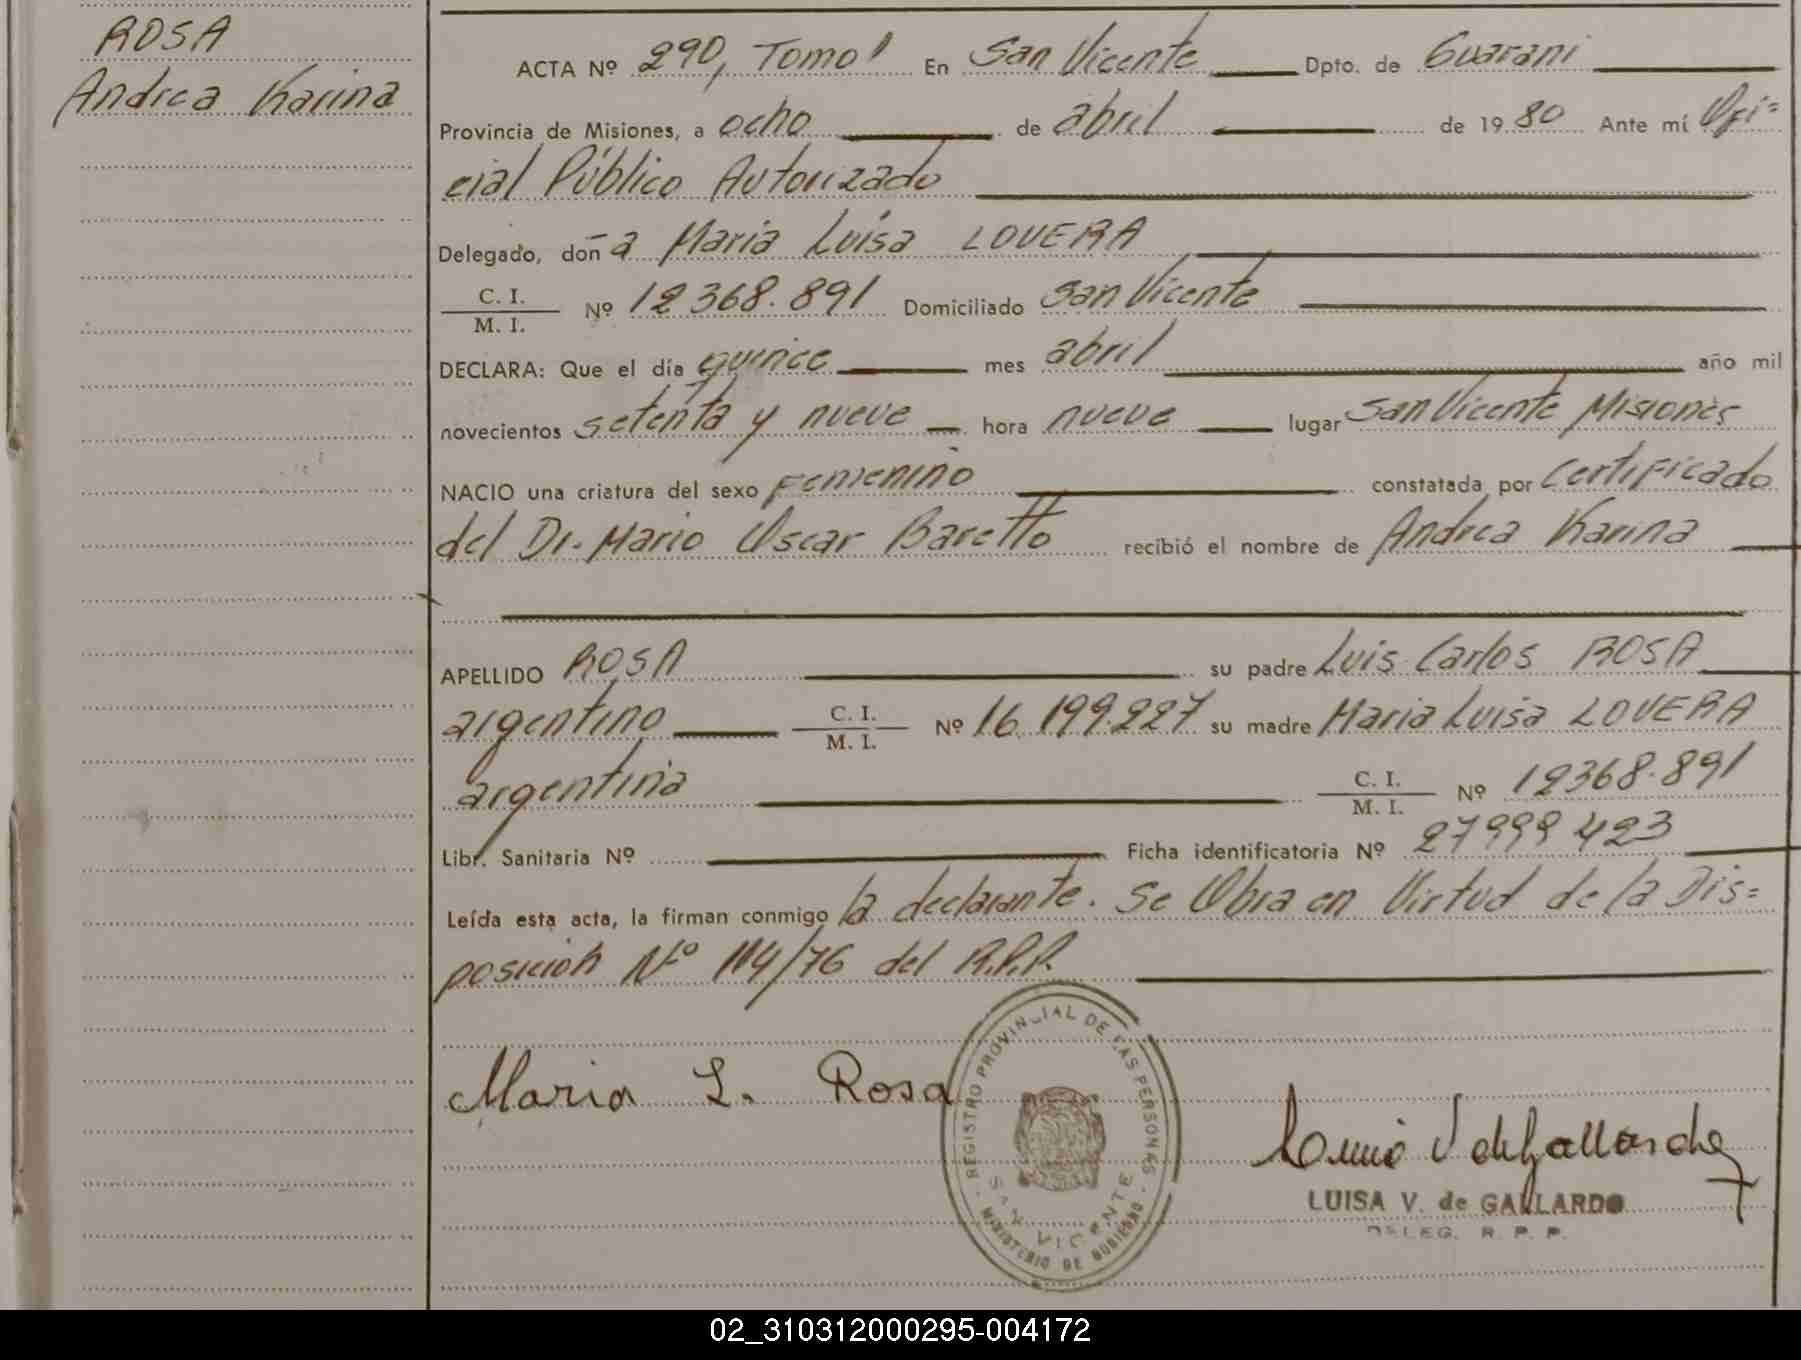 ROSA
Andrea Karina
ACTA Nº 290, Tomo I En San Vicente Dpto. de Guarani
Provincia de Misiones, a ocho de abril de 1980 Ante mí Ofi=
cial Público Autorizado
Delegado, doña Maria Luisa LOVERA
C. I.
M. I. Nº 12368.891 Domiciliado San Vicente
DECLARA: Que el día quince mes abril año mil
novecientos setenta y nueve hora nueve lugar San Vicente Misiones
NACIO una criatura del sexo Femenino constatada por Certificado
del Dr. Mario Oscar Baretto recibió el nombre de Andrea Karina
APELLIDO ROSA su padre Luis Carlos ROSA
argentino C. I.
M. I. Nº 16.199.227 su madre Maria Luisa LOVERA
argentina C. I.
M. I. Nº 12368.891
Libr. Sanitaria Nº Ficha identificatoria Nº 27999423
Leída esta acta, la firman conmigo la declarante. Se Obra en Virtud de la Dis=
posición Nº 114/76 del R.P.P.
Maria L. Rosa
REGISTRO PROVINCIAL DE LAS PERSONAS
SAN VICENTE
MINISTERIO DE GOBIERNO
LUISA V. de GALLARDO
DELEG. R. P. P.
02_310312000295-004172